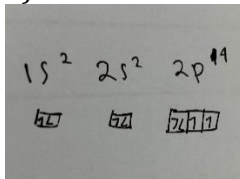 1s² 2s² 2p⁴